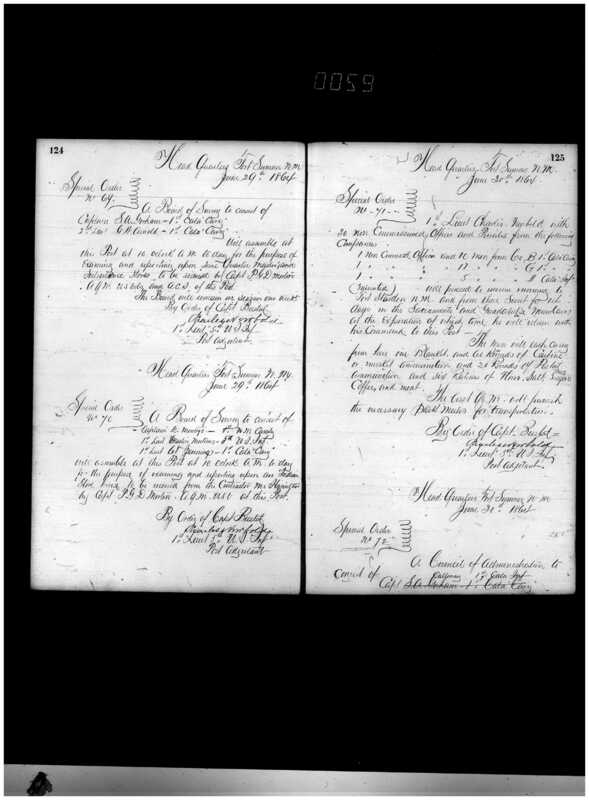 0059
124
Head Quarters Fort Sumner N.M.
June 29th 1864
Special Order
No 69
A Board of Survey to consist of
Captain S. A. Gorham - 1st Cala Cavy
2nd Lieut C. H. Arnold - 1st Cala Cavy
Will assemble at
this Post at 10 oclock A.M. to day for the purpose of
Examining and reporting upon Quarter Masters and
Subsistence Stores to be received by Capt P.G.D. Morton
A.Q.M. U.S. Army and A.C.S. of the Post
The Board will remain in session one week
By Order of Capt Bristol
Charles Newbold
1st Lieut 5th U.S. Inf
Post Adjutant
Head Quarters Fort Sumner N.M.
June 29th 1864
Special Order
No 70
A Board of Survey to consist of
Captain - 1st N.M. Cavalry
1st Lieut - 5th U.S. Inft
1st Lieut - 1st Cala Cavy
will assemble at this Post at 10 oclock A.M. to day
for the purpose of examining and reporting upon
to be received from the Contractor Mr
by Capt P.G.D. Morton A.Q.M. USA at this Post.
By Order of Capt Bristol
Charles Newbold
1st Lieut 5th U.S. Inf
Post Adjutant
125
Head Quarters Fort Sumner N.M.
June 30th 1864
Special Order
No 71
1st Lieut Charles Newbold with
20 non Commissioned Officers and Privates from the following
Companies
1 Non Commd Officer and 10 men from Co B 1st Cala Cavy
1 " " " 17 " " G 1st "
1 " " " 5 " " Cala Inf
(mounted) will proceed to morrow morning to
Fort Stanton N.M. and from there Scout for
days in the Sacramento and Guadalupe Mountains
at the Expiration of which time he will return with
his Command to this Post —
The men will each carry
from here one Blanket and 40 Rounds of Carbine
or musket ammunition and 20 Rounds of Pistol
ammunition and Rations of Flour Salt Sugar
Coffee and meat.
The A.Q.M. will furnish
the necessary Pack Mules for transportation.
By Order of Capt. Bristol -
Charles Newbold
1st Lieut 5th U.S. Inf
Post Adjutant
Head Quarters Fort Sumner N.M.
June 30th 1864
Special Order
No 72
A Council of Administration to
Calloway 1st Cala Inft
consist of Capt S.A. Gorham 1st Cala Cavy